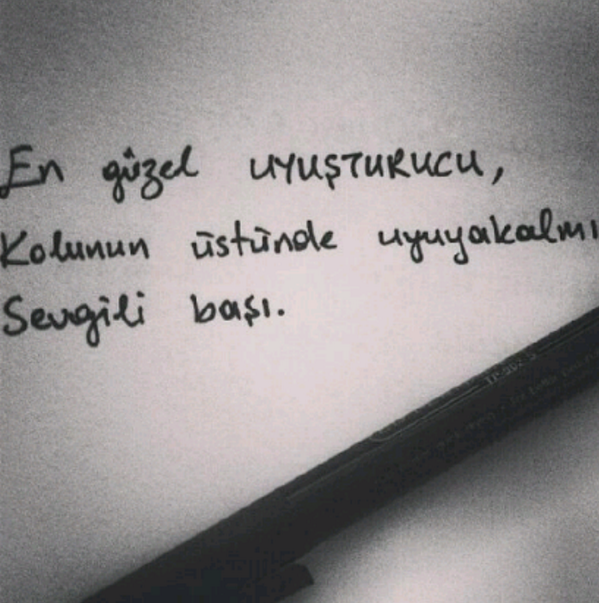 En güzel UYUŞTURUCU,
Kolunun üstünde uyuyakalmı
Sevgili başı.